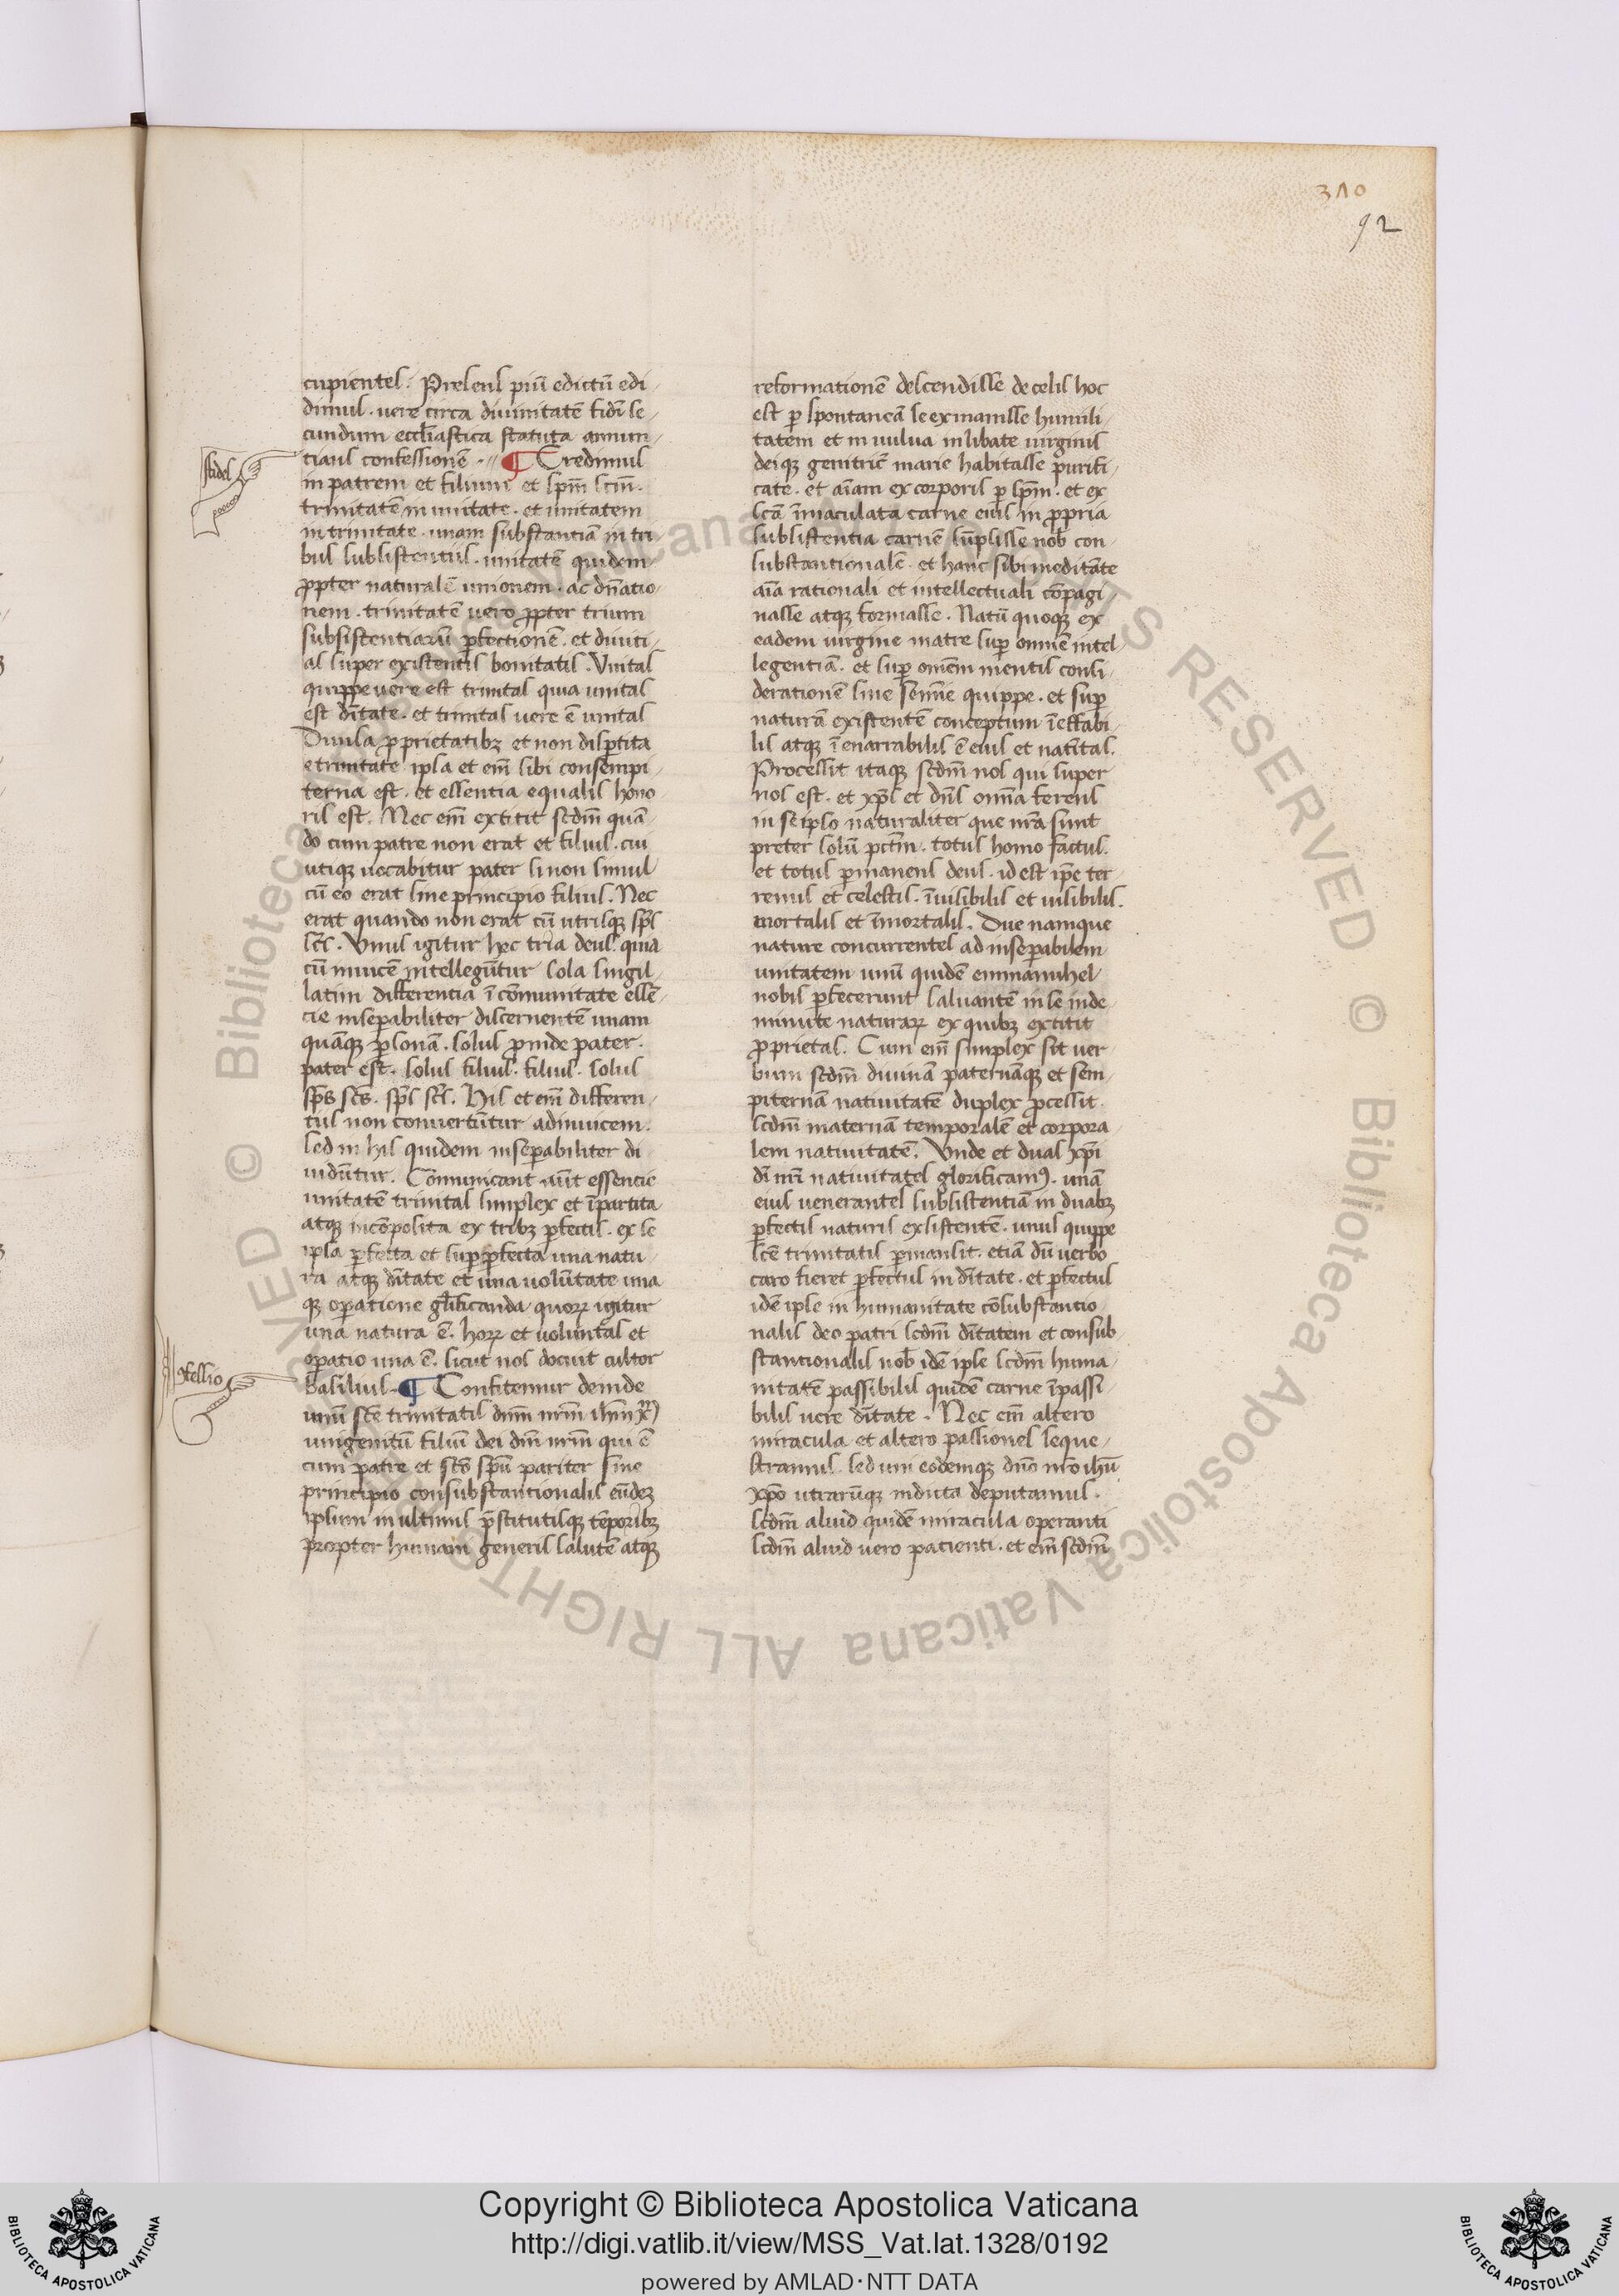 310
92
cupientes. Presens piū edictū edi
dimus. vere circa diuinitatē fidī se
cundum eccl̄iastica statuta annun
tians confessionē. ¶ Credimus
fides
in patrem et filium et sp̄m sc̄m.
trinitatē in unitate. et unitatem
in trinitate. unam substantiā in tri
bus subsistentiis. unitatē quidem
ꝓpter naturalē unionem. ac dn̄atio
nem. trinitatē uero ꝓpter trium
subsistentiarū ꝑfectionē. et diuiti
as super existentis bonitatis. Vnitas
quippe uere est trinitas quia unitas
est dītate. et trinitas uere ē unitas
Diuisa ꝓprietatibꝫ et non disꝑtita
e trinitate ipsa et em̄ sibi consempi
terna est. et essentia equalis hono
ris est. Nec em̄ extitit scdm̄ quā
do cum patre non erat et filius. cui
utiqꝫ uocabitur pater si non simul
cū eo erat sine principio filius. Nec
erat quando non erat cū utrisqꝫ sp̄s
sc̄s. Vnus igitur hec tria deus. quia
cū inuicē intellegūtur sola singil
latim differentia ī cōmunitate essē
cie inseꝑabiliter discernentē unam
quāqꝫ ꝑsonā. solus ꝓinde pater.
pater est. solus filius. filius. solus
sp̄s sc̄s. sp̄s sc̄s. His et em̄ differen
tus non conuertūtur adinuicem.
sed in his quidem inseꝑabiliter di
uidūtur. Cōmunicant aūt essencie
unitatē trinitas simplex et īpartita
atqꝫ incōposita ex tribꝫ ꝑfectis. ex se
ipsa ꝑfecta et suꝑꝑfecta una natu
ra atqꝫ dītate et una volūtate una
qꝫ oꝑatione gl̄ificanda. quoꝝ igitur
una natura ē. hoꝝ et voluntas et
oꝑatio una ē. sicut nos docuit cultor
ꝯfessio
basilius. ¶ Confitemur deinde
unū sc̄e trinitatis dnm̄ nr̄m ihm̄ xp̄m
unigenitū filiū dei dm̄ nr̄m qui ē
cum patre et sc̄o spū pariter sine
principio consubstantionalis eūdeꝫ
ipsum in ultimis p̄stitutisqꝫ tēporibꝫ
propter humani generis salutē atqꝫ
reformationē descendisse de celis hoc
est ꝑ spontaneā se exinanisse humili
tatem et in uulua inlibate uirginis
deiqꝫ genitric̄ marie habitasse purifi
cate. et aīam ex corporis ꝑ sp̄m. et ex
sc̄a īmaculata carne eius in ꝓpria
subsistentia carnē sūpsisse nob̄ con
substantionalē. et hanc sibi meditāte
aīa rationali et intellectuali cōpagi
nasse atqꝫ formasse. Natū quoqꝫ ex
eadem uirgine matre suꝑ omnē intel
legentiā. et suꝑ omēm mentis consi
derationē sine semīe quippe. et suꝑ
naturā existentē conceptum īeffabi
lis atqꝫ ī enarrabilis ē eius et natītas.
Processit itaqꝫ scdm̄ nos qui super
nos est. et xp̄s et dn̄s omīa ferens
in se ipso naturaliter que nr̄a sunt
preter solū pctm̄. totus homo factus.
et totus ꝑmanens deus. id est ip̄e ter
renus et celestis. īuisibilis et uisibilis.
mortalis et īmortalis. Due namque
nature concurrentes ad inseꝑabilem
unitatem unū quidē emmanuhel
nobis ꝑfecerunt saluantē in se inde
minute naturaꝝ ex quibꝫ extitit
ꝓprietas. Cum em̄ simplex sit uer
bum scdm̄ diuinā paternāqꝫ et sem
piternā natiuitatē duplex ꝓcessit.
scdm̄ maternā temporalē et corpora
lem natiuitatē. Vnde et duas xp̄i
dī nr̄i natiuitates glorificamꝰ. unā
eius uenerantes subsistentiā in duabꝫ
ꝑfectis naturis exsistentē. unus quippe
sc̄e trinitatis ꝑmansit. etiā dū uerbo
caro fieret ꝑfectus in dītate. et ꝑfectus
idē ipse in humanitate cōsubstantio
nalis deo patri scdm̄ dītatem et consub
stantionalis nob̄ idē ipse scdm̄ huma
nitatē passibilis quidē carne īpassi
bilis uere dītate. Nec em̄ altero
miracula et altero passiones seque
stramus. sed uni eodemqꝫ dn̄o nr̄o ihū
xp̄o utrarūqꝫ indicta deputamus.
scdm̄ aliud quidē miracula operanti
scdm̄ aliud vero pacienti. et em̄ scdm̄
Copyright © Biblioteca Apostolica Vaticana
http://digi.vatlib.it/view/MSS_Vat.lat.1328/0192
powered by AMLAD·NTT DATA
BIBLIOTECA APOSTOLICA VATICANA
BIBLIOTECA APOSTOLICA VATICANA
© Biblioteca Apostolica Vaticana ALL RIGHTS RESERVED © Biblioteca Apostolica Vaticana ALL RIGHTS RESERVED